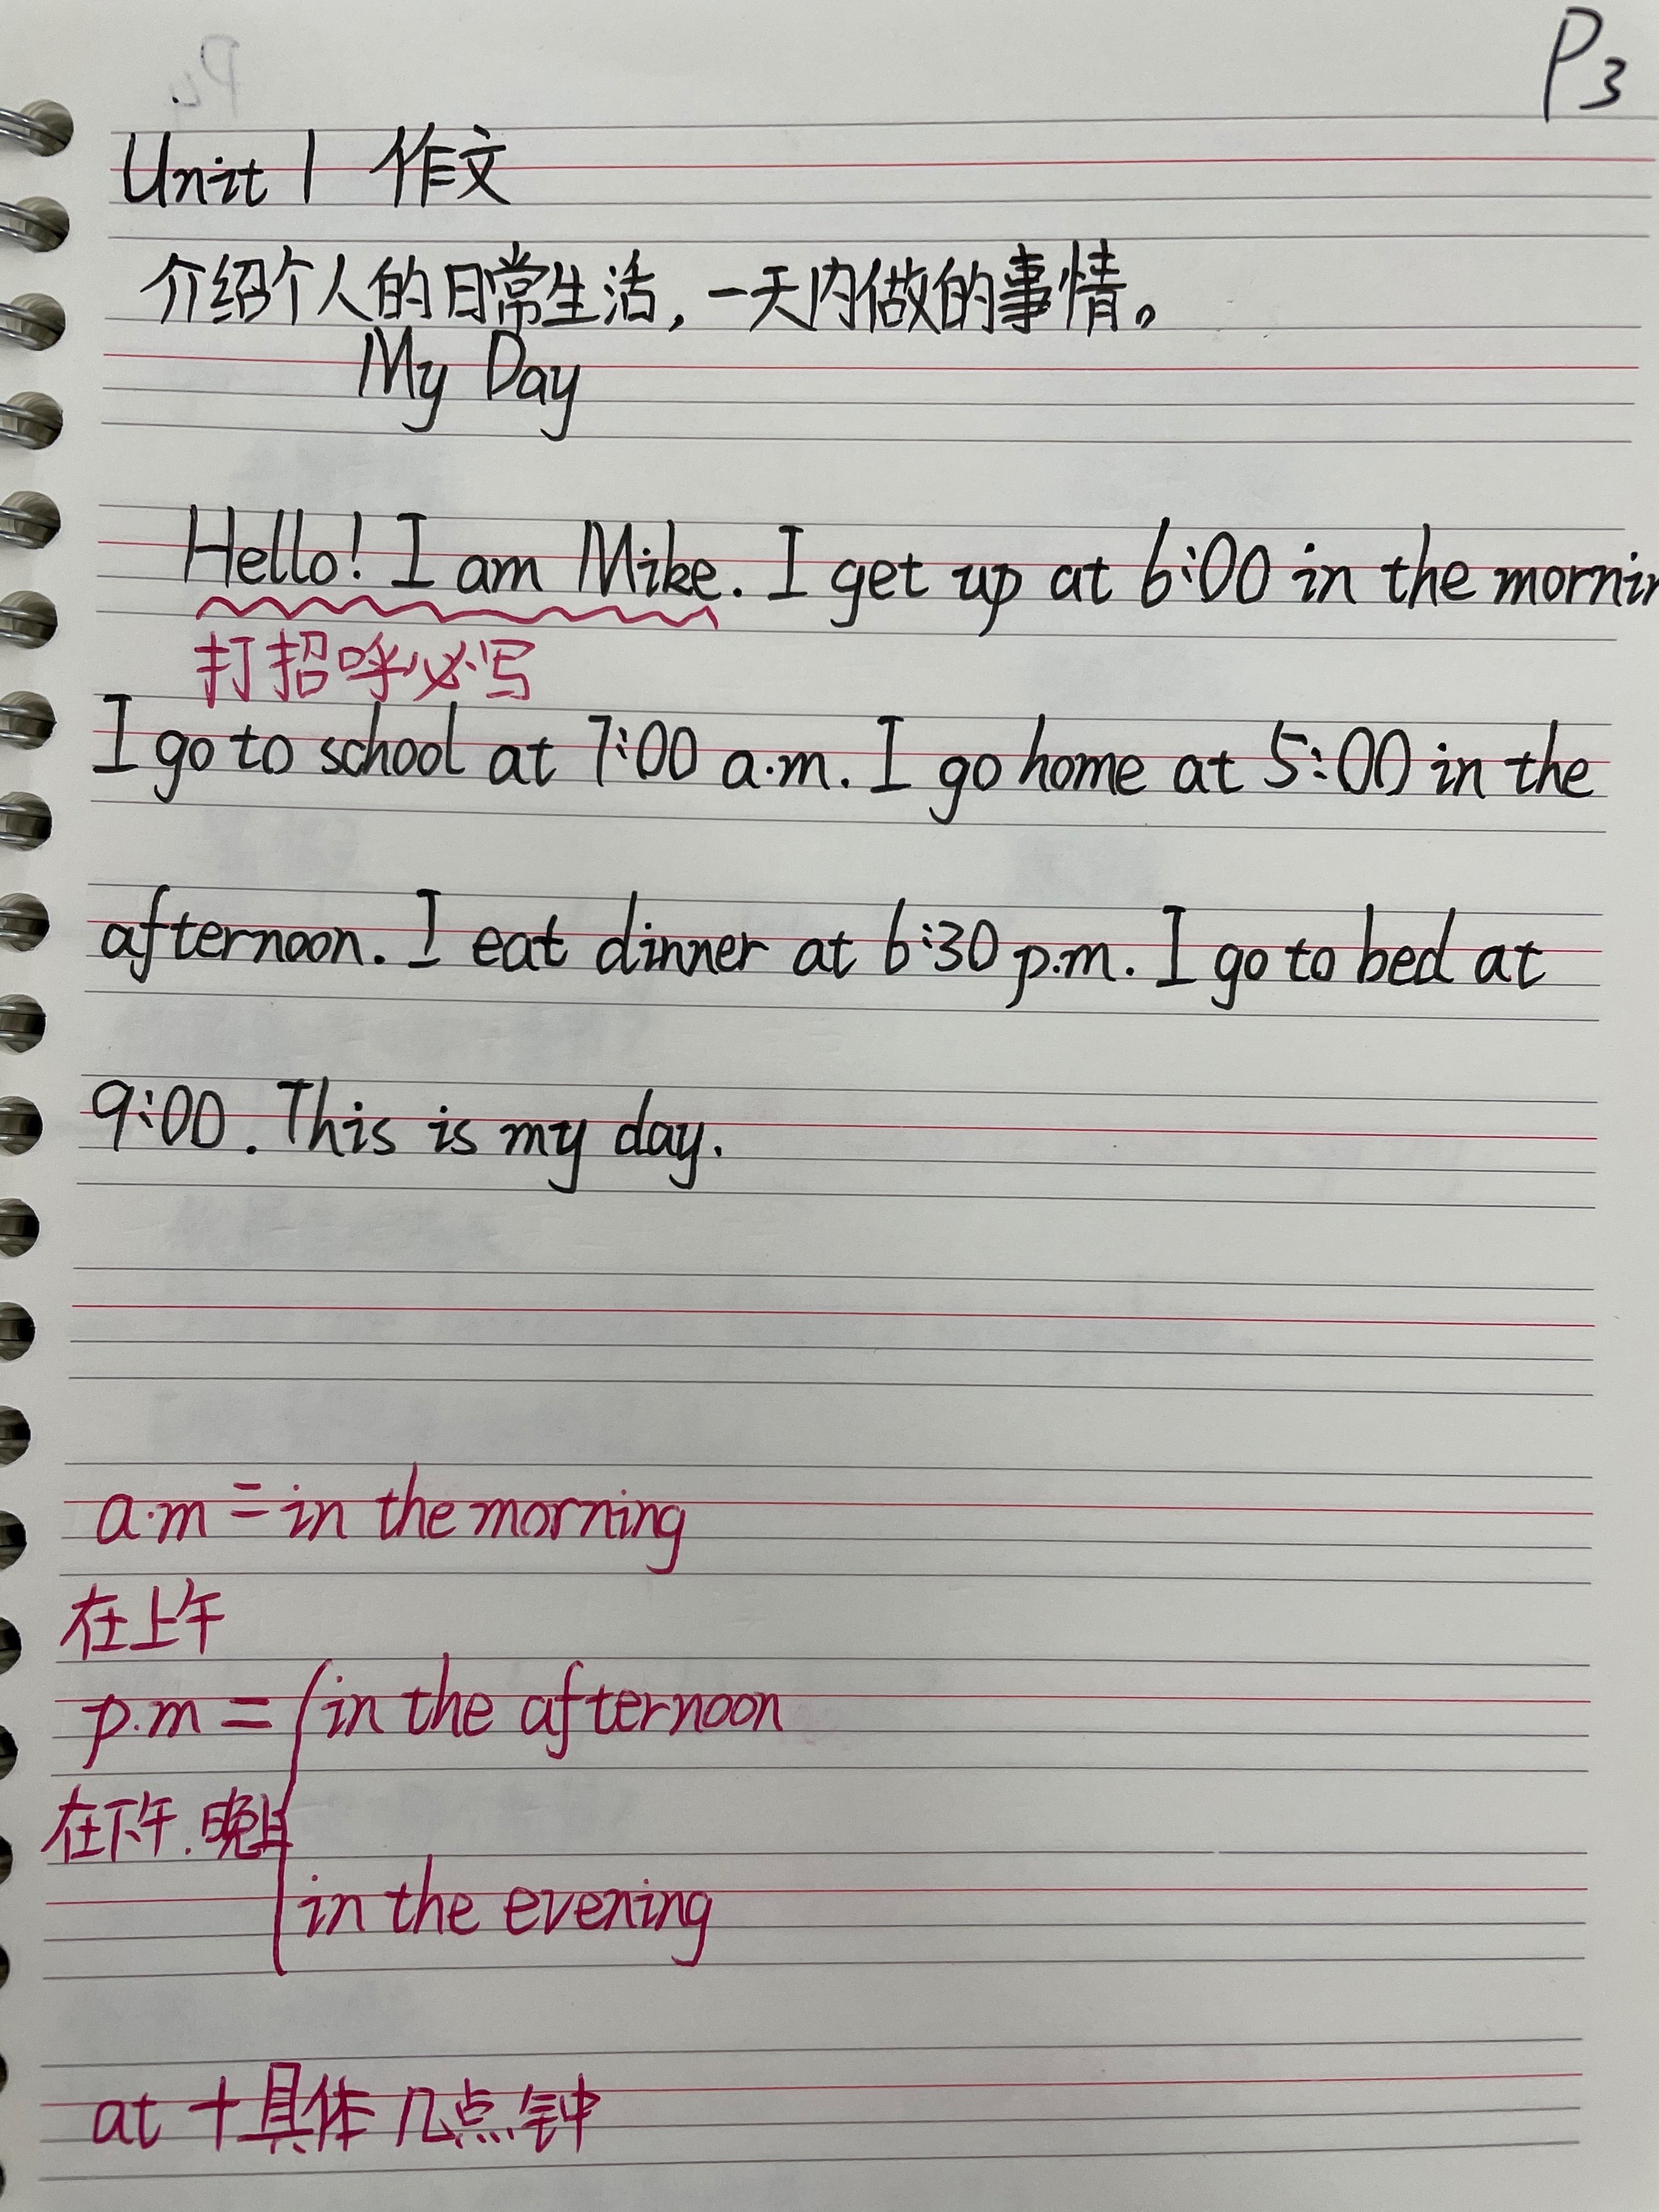 P3
Unit 1 作文
介绍个人的日常生活,一天内做的事情。
My Day
Hello! I am Mike. I get up at 6:00 in the mornin
打招呼必写
I go to school at 7:00 a.m. I go home at 5:00 in the
afternoon. I eat dinner at 6:30 p.m. I go to bed at
9:00. This is my day.
a.m = in the morning
在上午
p.m = in the afternoon
在下午.晚上
in the evening
at + 具体几点钟